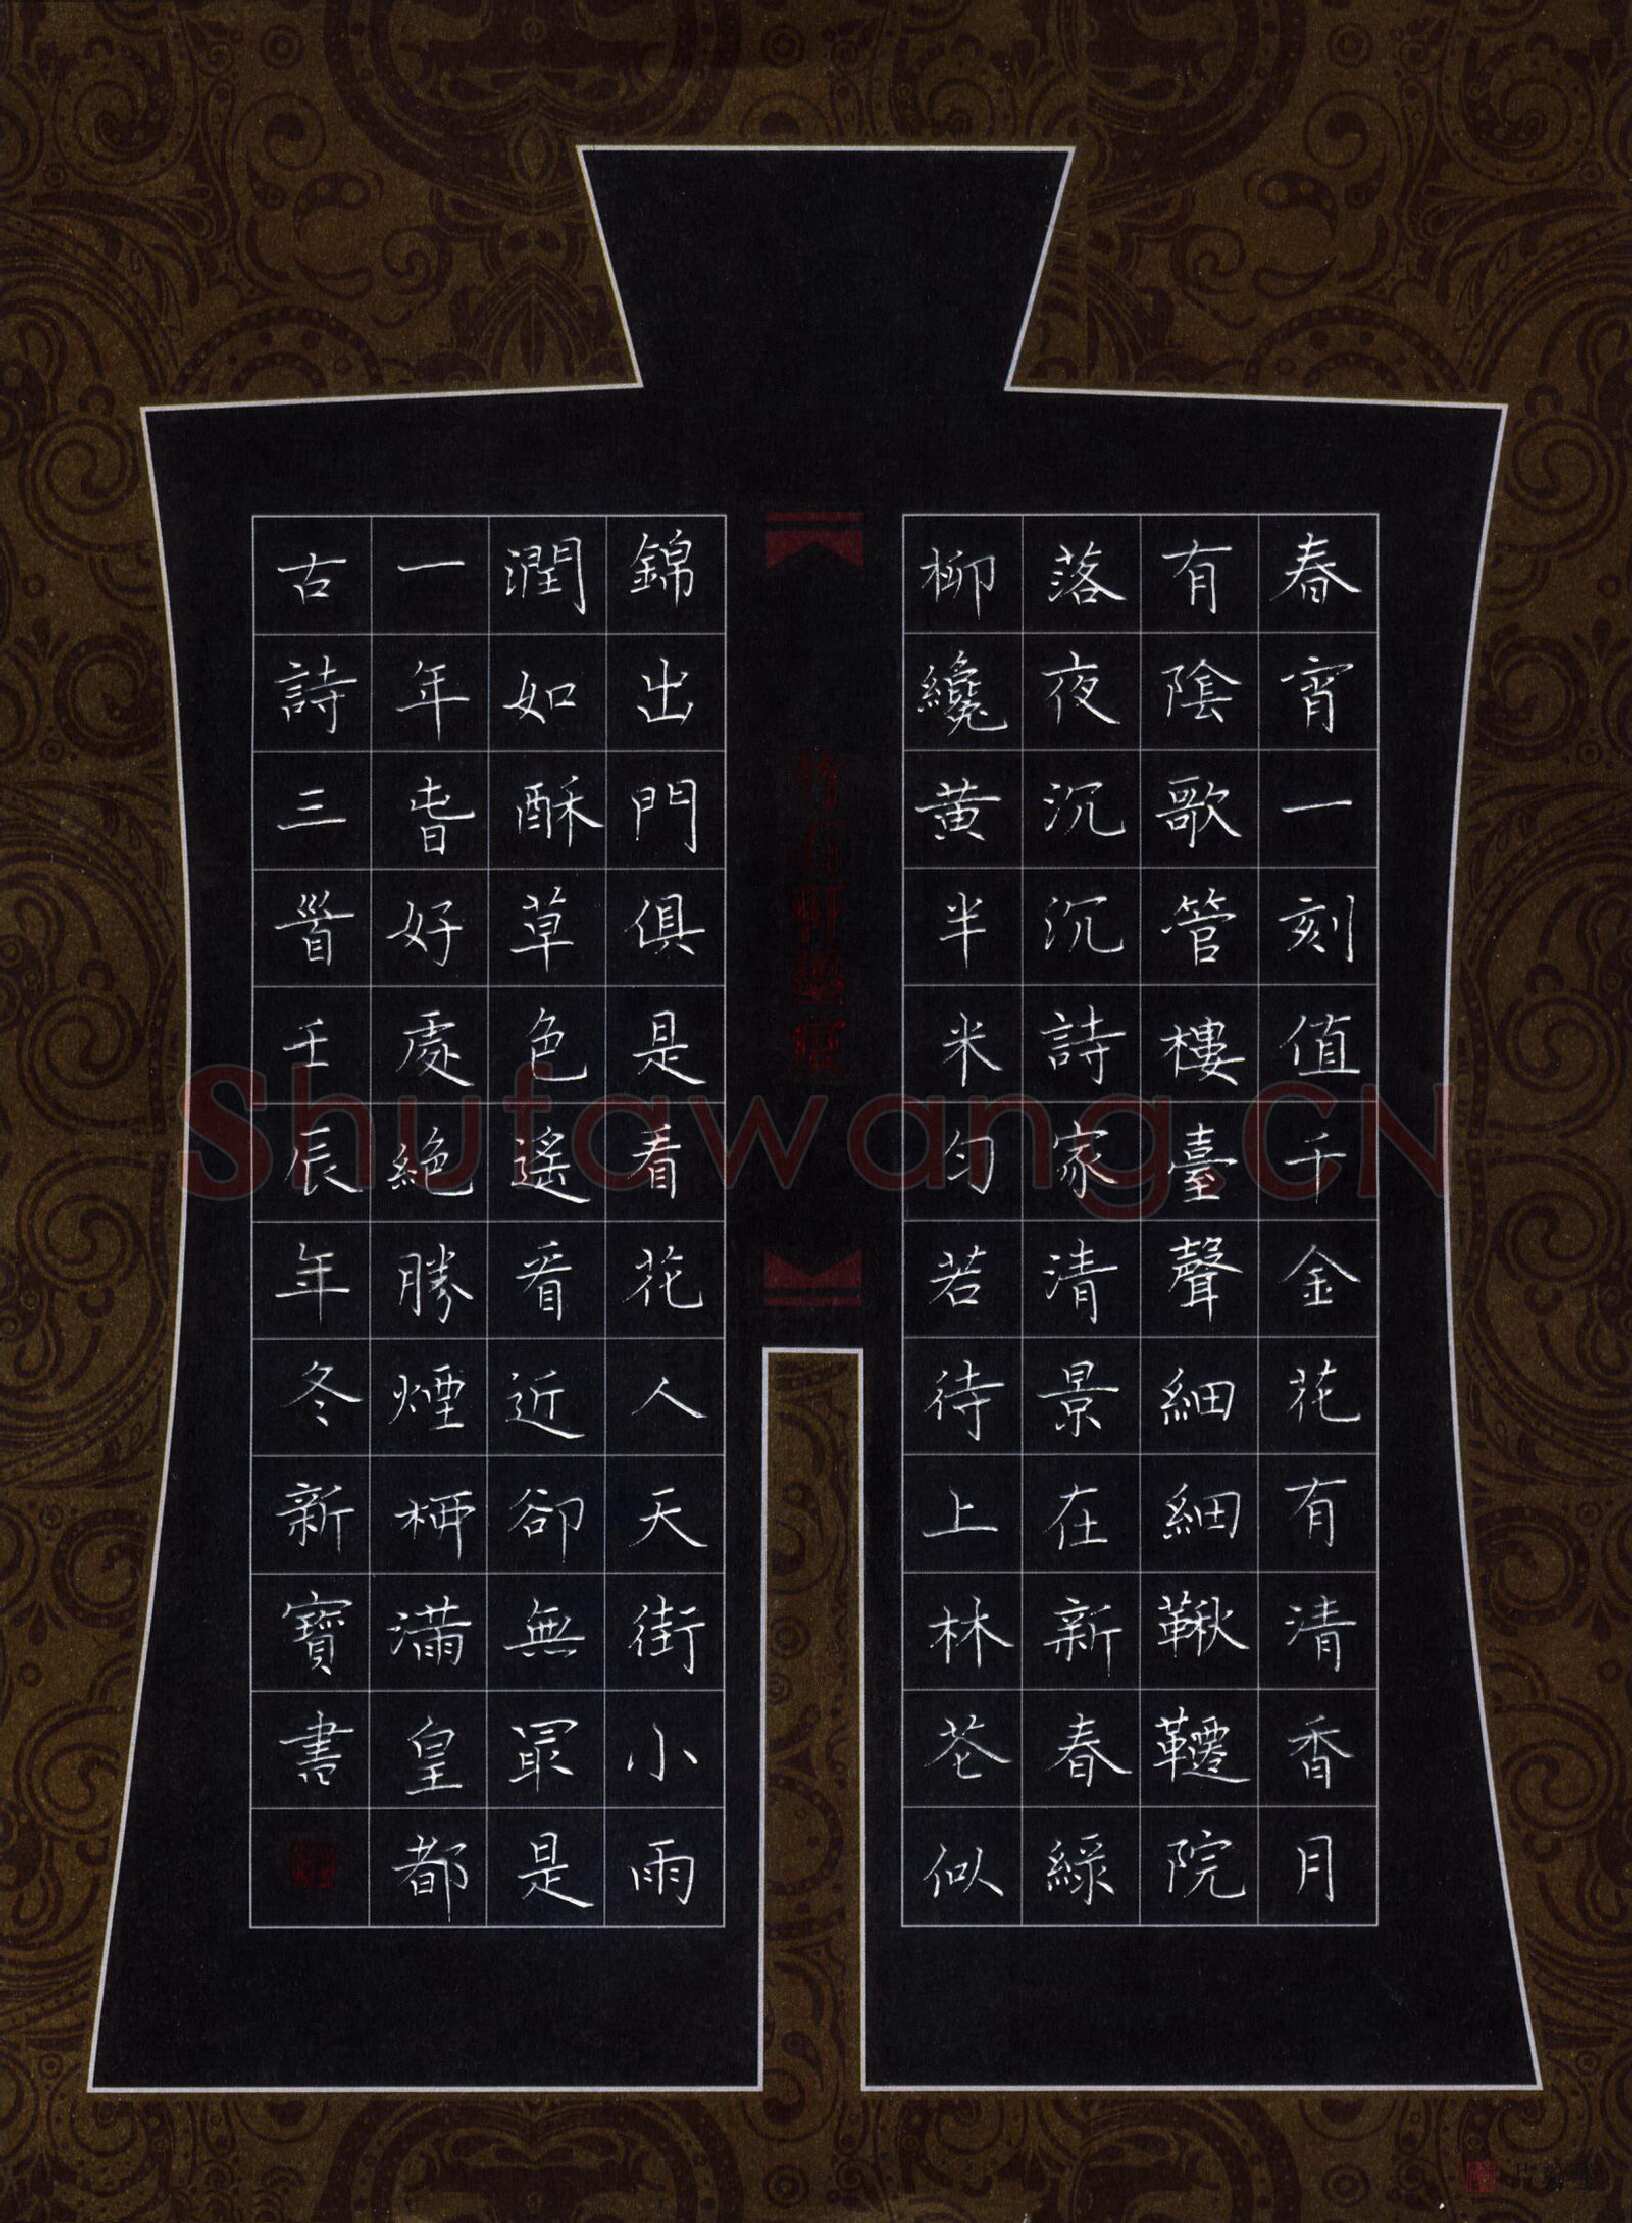 春宵一刻值千金花有清香月
有陰歌管樓臺聲細細鞦韆院
落夜沉沉詩家清景在新春綠
柳纔黃半米匀若待上林花似
錦出門俱是看花人天街小雨
潤如酥草色遙看近卻無最是
一年旾好處絕勝煙柳滿皇都
古詩三首壬辰年冬新寶書
Shufawang.CN